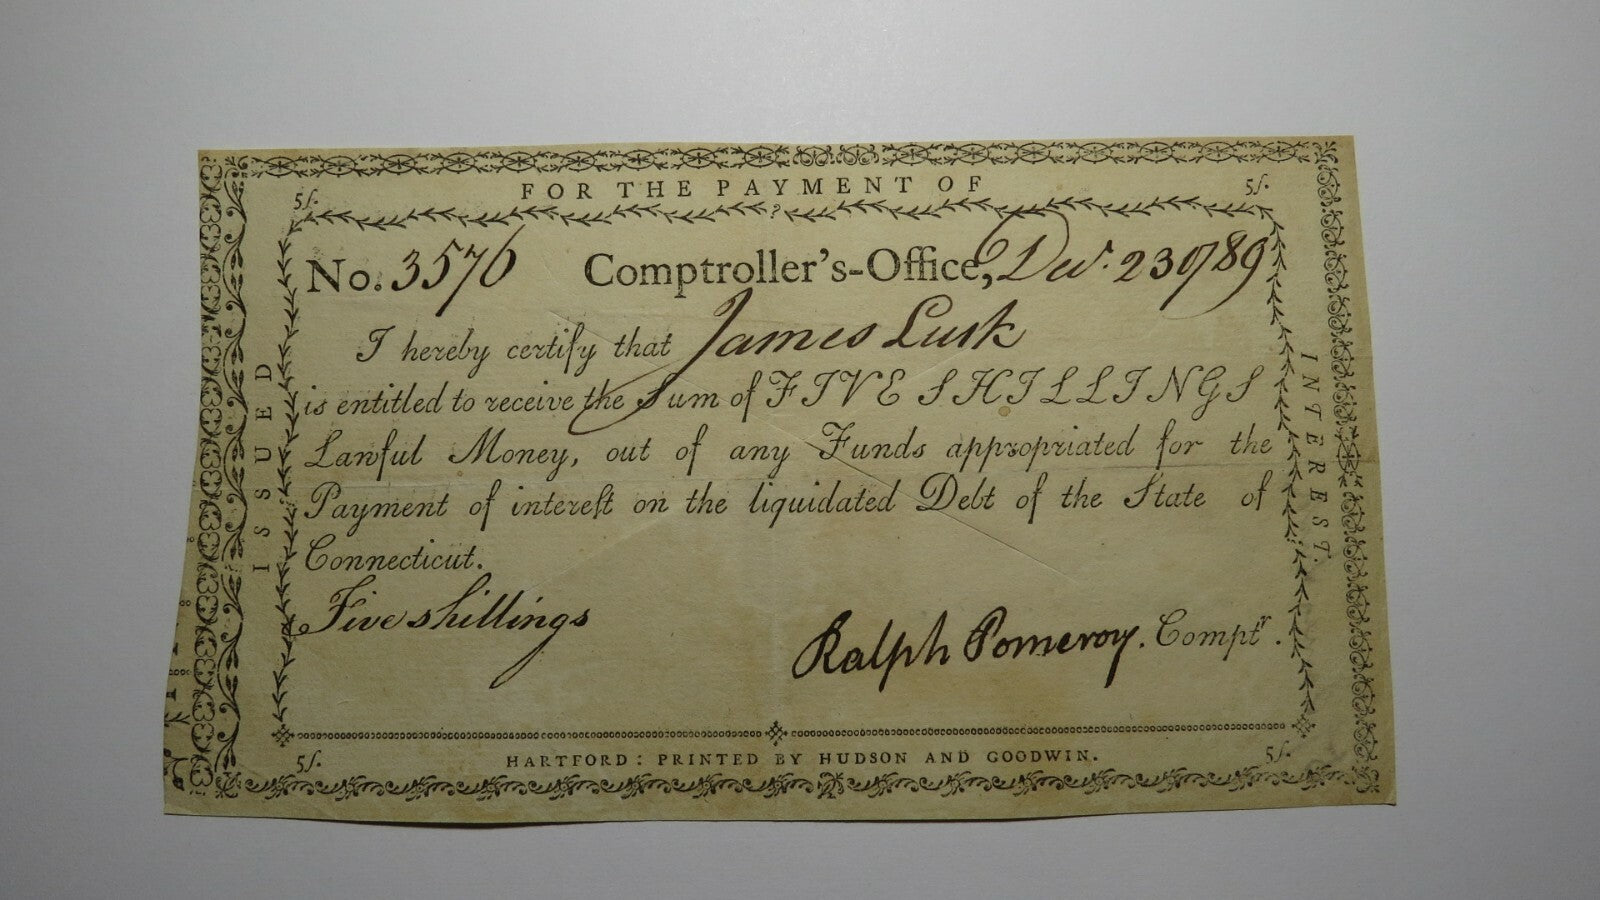 FOR THE PAYMENT OF
5/. 5/.
ISSUED
INTEREST.
No. 3576 Comptroller's-Office, Decr. 23d 1789
I hereby certify that James Lusk
is entitled to receive the Sum of FIVE SHILLINGS
Lawful Money, out of any Funds appropriated for the
Payment of intereſt on the liquidated Debt of the State of
Connecticut.
Five shillings
Ralph Pomeroy. Comptr.
5/. 5/.
HARTFORD: PRINTED BY HUDSON AND GOODWIN.